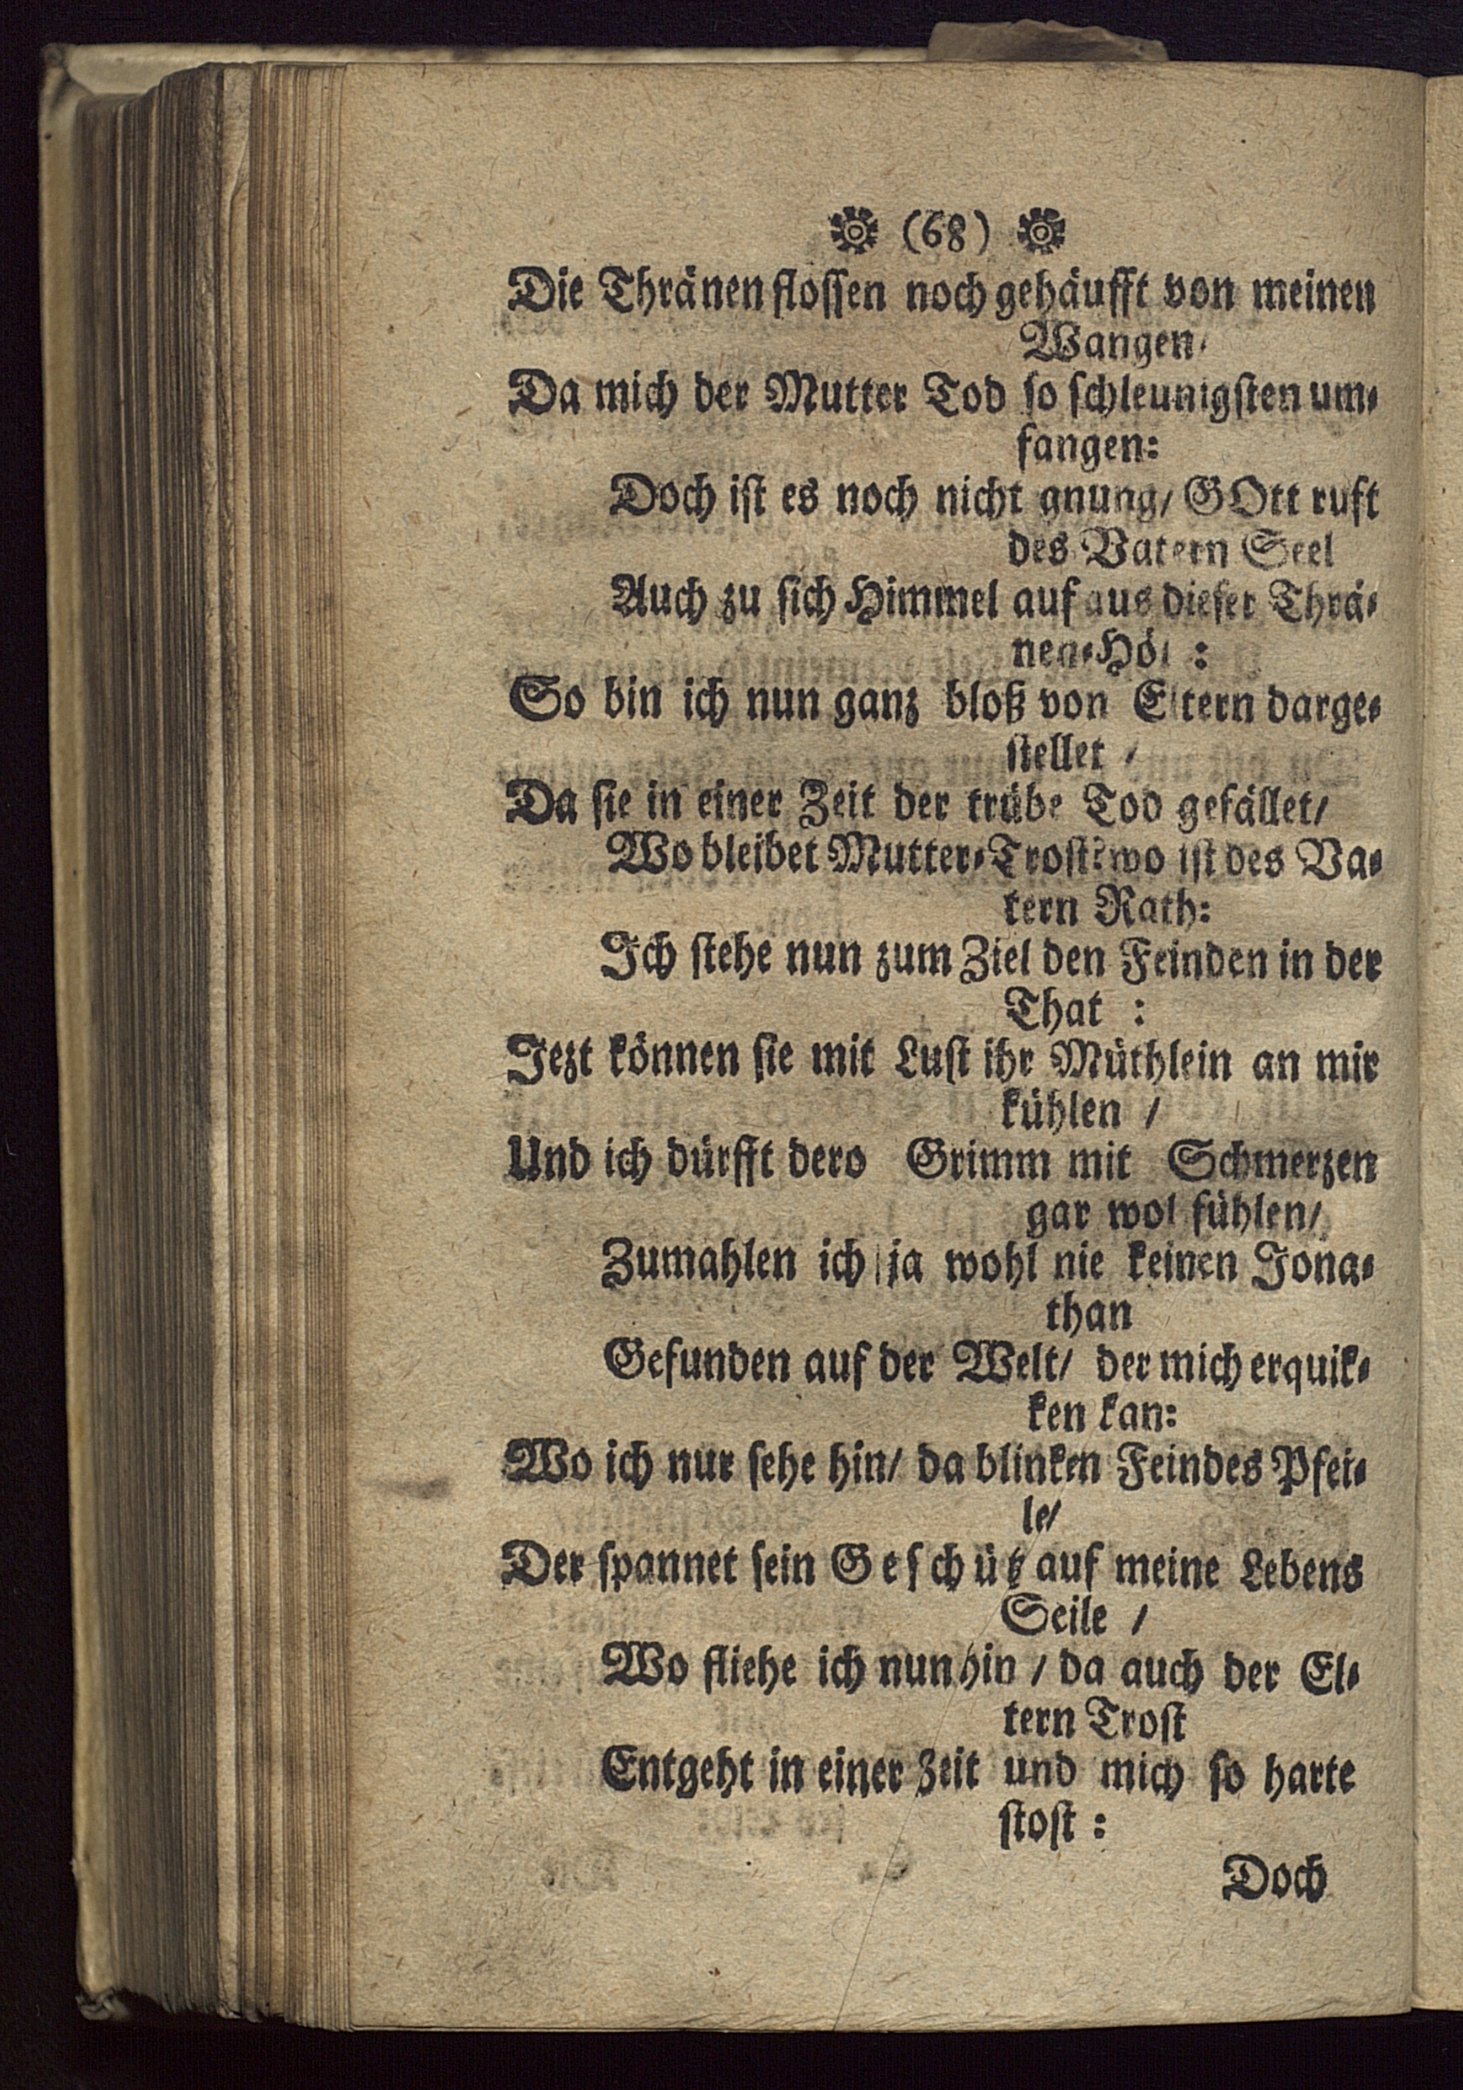 (68)
Die Thränen flossen noch gehäufft von meinen
Wangen/
Da mich der Mutter Tod so schleunigsten um-
fangen:
Doch ist es noch nicht gnung/ GOtt ruft
des Vatern Seel
Auch zu sich Himmel auf aus dieser Thrä-
nen-Höl :
So bin ich nun ganz bloß von Eltern darge-
stellet /
Da sie in einer Zeit der trübe Tod gefället/
Wo bleibet Mutter-Trost? wo ist des Va-
tern Rath:
Ich stehe nun zum Ziel den Feinden in der
That :
Jezt können sie mit Lust ihr Müthlein an mir
kühlen /
Und ich dürfft dero Grimm mit Schmerzen
gar wol fühlen/
Zumahlen ich ja wohl nie keinen Jona-
than
Gefunden auf der Welt/ der mich erquik-
ken kan:
Wo ich nur sehe hin/ da blinken Feindes Pfei-
le/
Der spannet sein Geschütz auf meine Lebens
Seile /
Wo fliehe ich nun hin / da auch der El-
tern Trost
Entgeht in einer Zeit und mich so harte
stost :
Doch